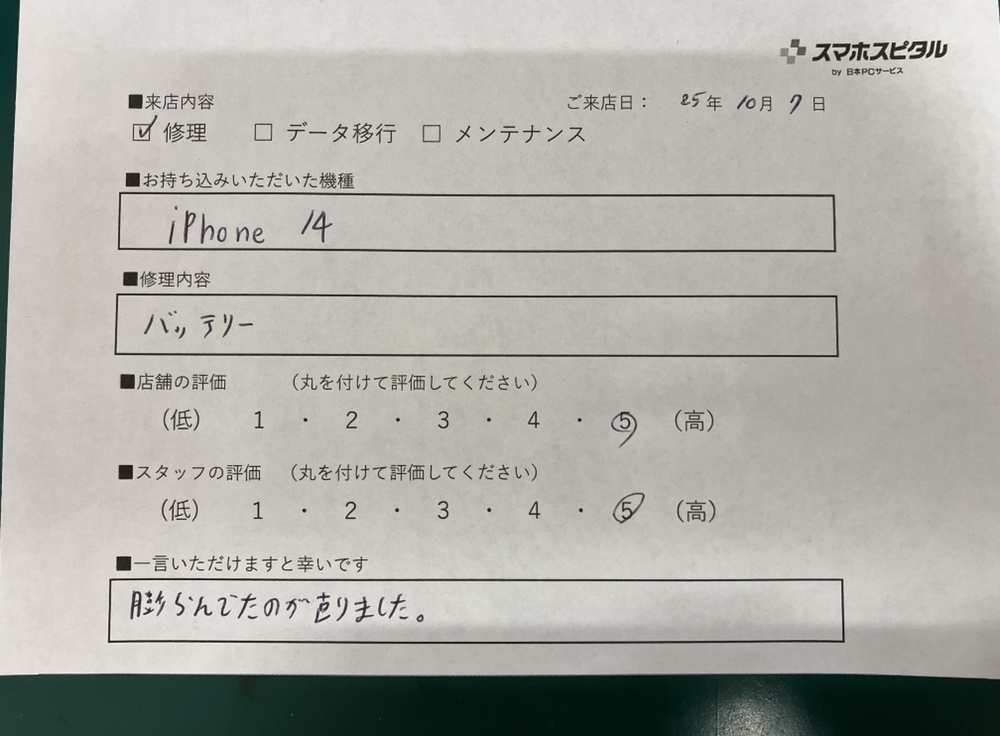 スマホスピタル
by 日本PCサービス
■来店内容 ご来店日： 25年 10月 7日
☑ 修理 □ データ移行 □ メンテナンス
■お持ち込みいただいた機種
iPhone 14
■修理内容
バッテリー
■店舗の評価 （丸を付けて評価してください）
（低） 1 ・ 2 ・ 3 ・ 4 ・ 5 （高）
■スタッフの評価 （丸を付けて評価してください）
（低） 1 ・ 2 ・ 3 ・ 4 ・ 5 （高）
■一言いただけますと幸いです
膨らんでたのが直りました。